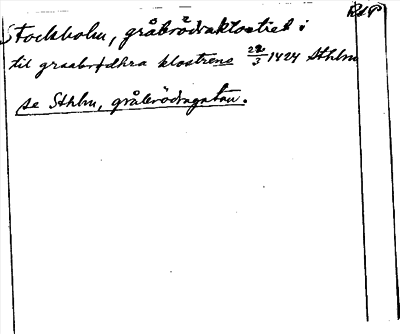 Stockholm, gråbrödraklostret i RAP
til graabrødhra klostrene 22/3 1424 Sthlm
se Sthlm, gråbrödragatan.